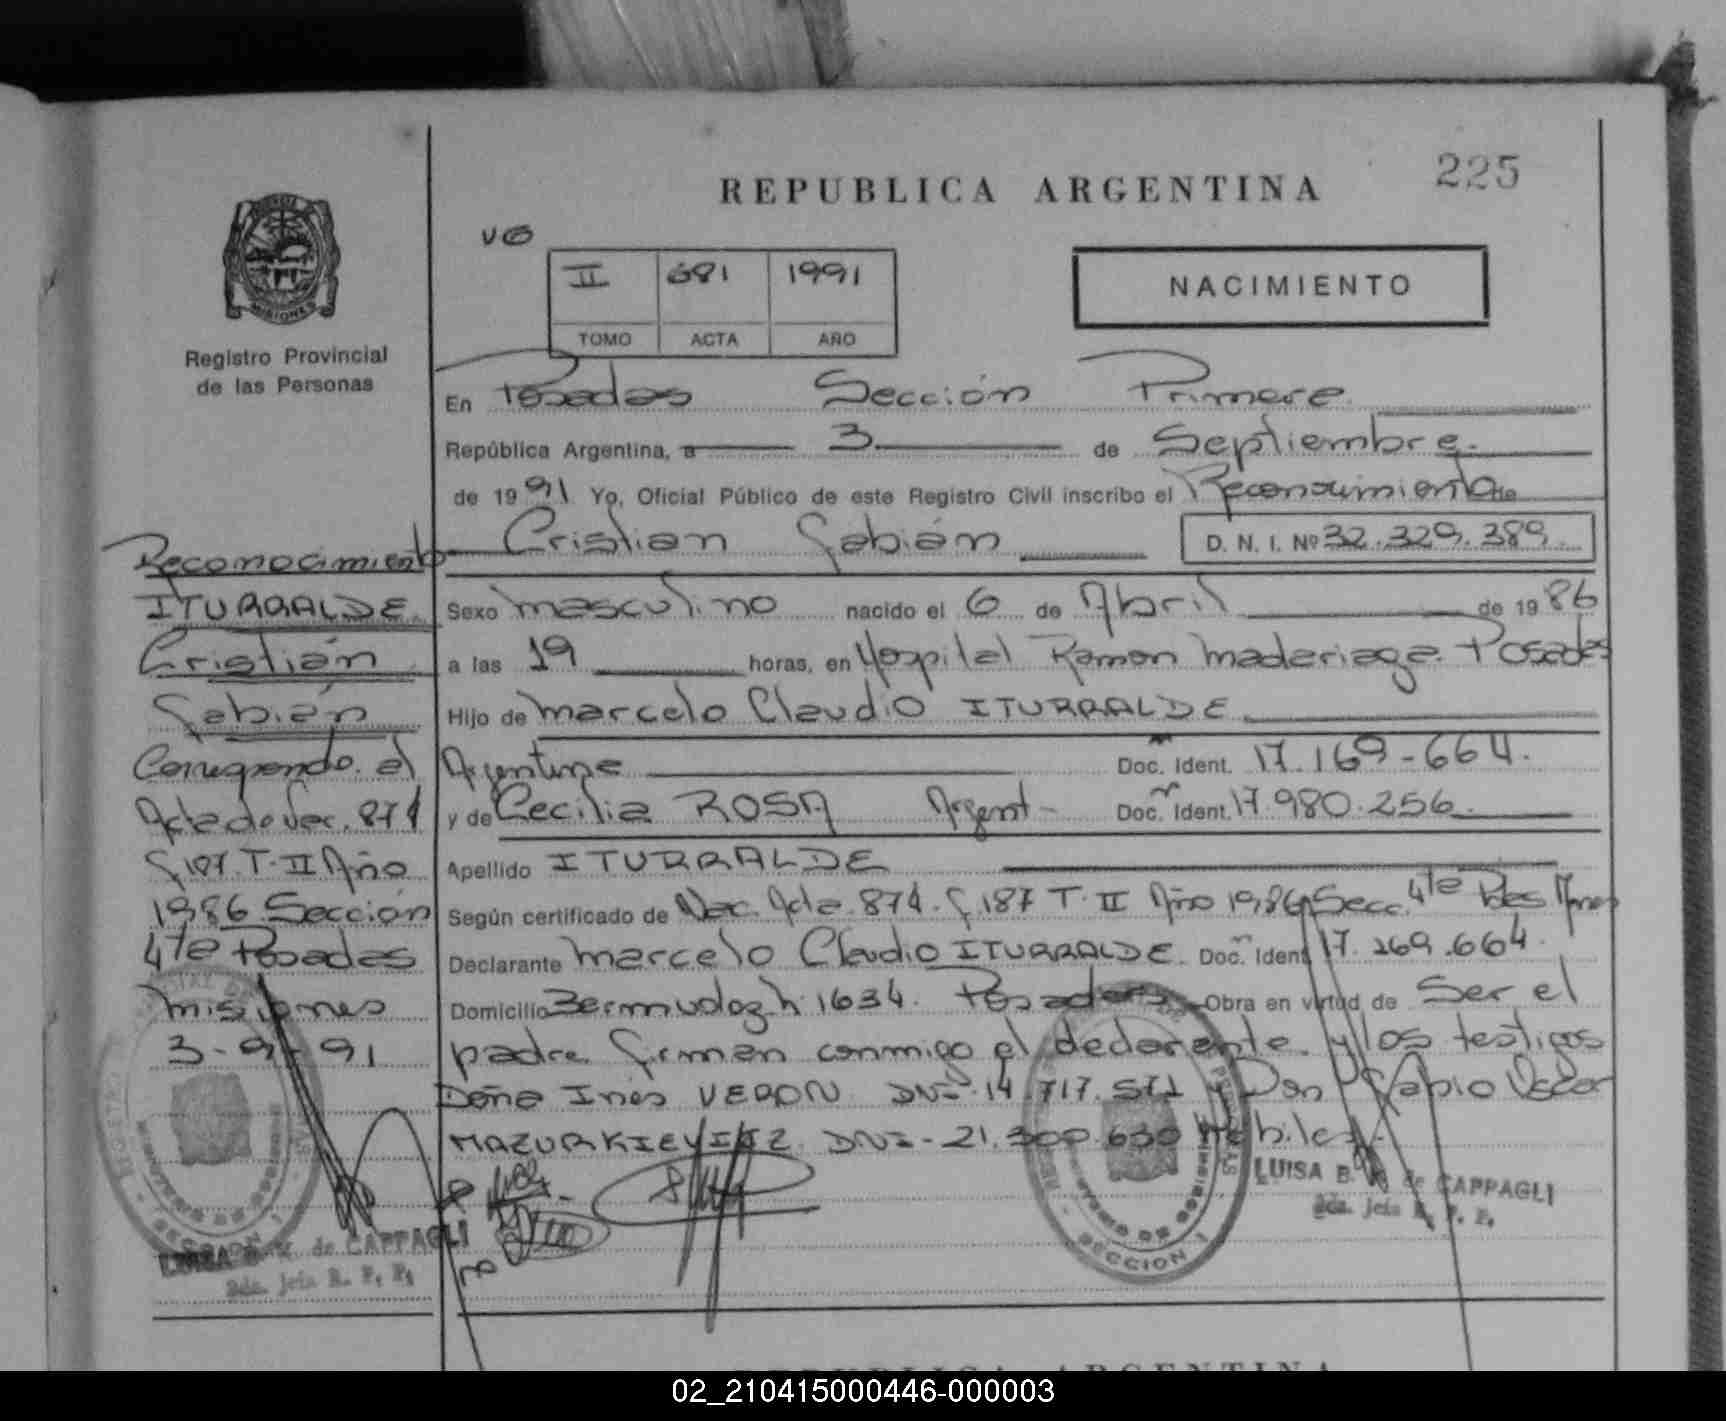 225
REPUBLICA ARGENTINA
VG
II 681 1991
TOMO ACTA AÑO
NACIMIENTO
MISIONES
Registro Provincial
de las Personas
En Posadas Sección Primera
República Argentina, a 3 de Septiembre
de 1991 Yo, Oficial Público de este Registro Civil inscribo el Reconocimiento de
Cristian Fabián D. N. I. Nº 32.329.389
Sexo masculino nacido el 6 de Abril de 1986
a las 19 horas, en Hospital Ramon Madariaga. Posadas
Hijo de Marcelo Claudio ITURRALDE
Argentina Doc. Ident. 17.169-664.
y de Cecilia ROSA Argent- Doc. Ident. 17.980.256
Apellido ITURRALDE
Según certificado de Nac. Acta. 874. F. 187 T. II Año 1986 Secc. 4ta
Declarante Marcelo Claudio ITURRALDE. Doc. Ident. 17.169.664.
Domicilio 1634. Posadas Obra en virtud de Ser el
padre. Firman conmigo el declarante. y los testigos
Doña Ines VERON DNI. 14.717.571 y Don Fabio
DNI-21.300.630 Habiles.
LUISA B. de CAPPAGLI
2da. Jefa R. P. P.
SECCION 1
Reconocimiento
ITURRALDE
Cristián
Fabián
Corresponde al
Acta de Nac. 874
F. 187. T. II Año
1986 Sección
4ta Posadas
Misiones
3-9-91
LUISA B. de CAPPAGLI
2da. Jefa R. P. P.
REPUBLICA ARGENTINA
02_210415000446-000003